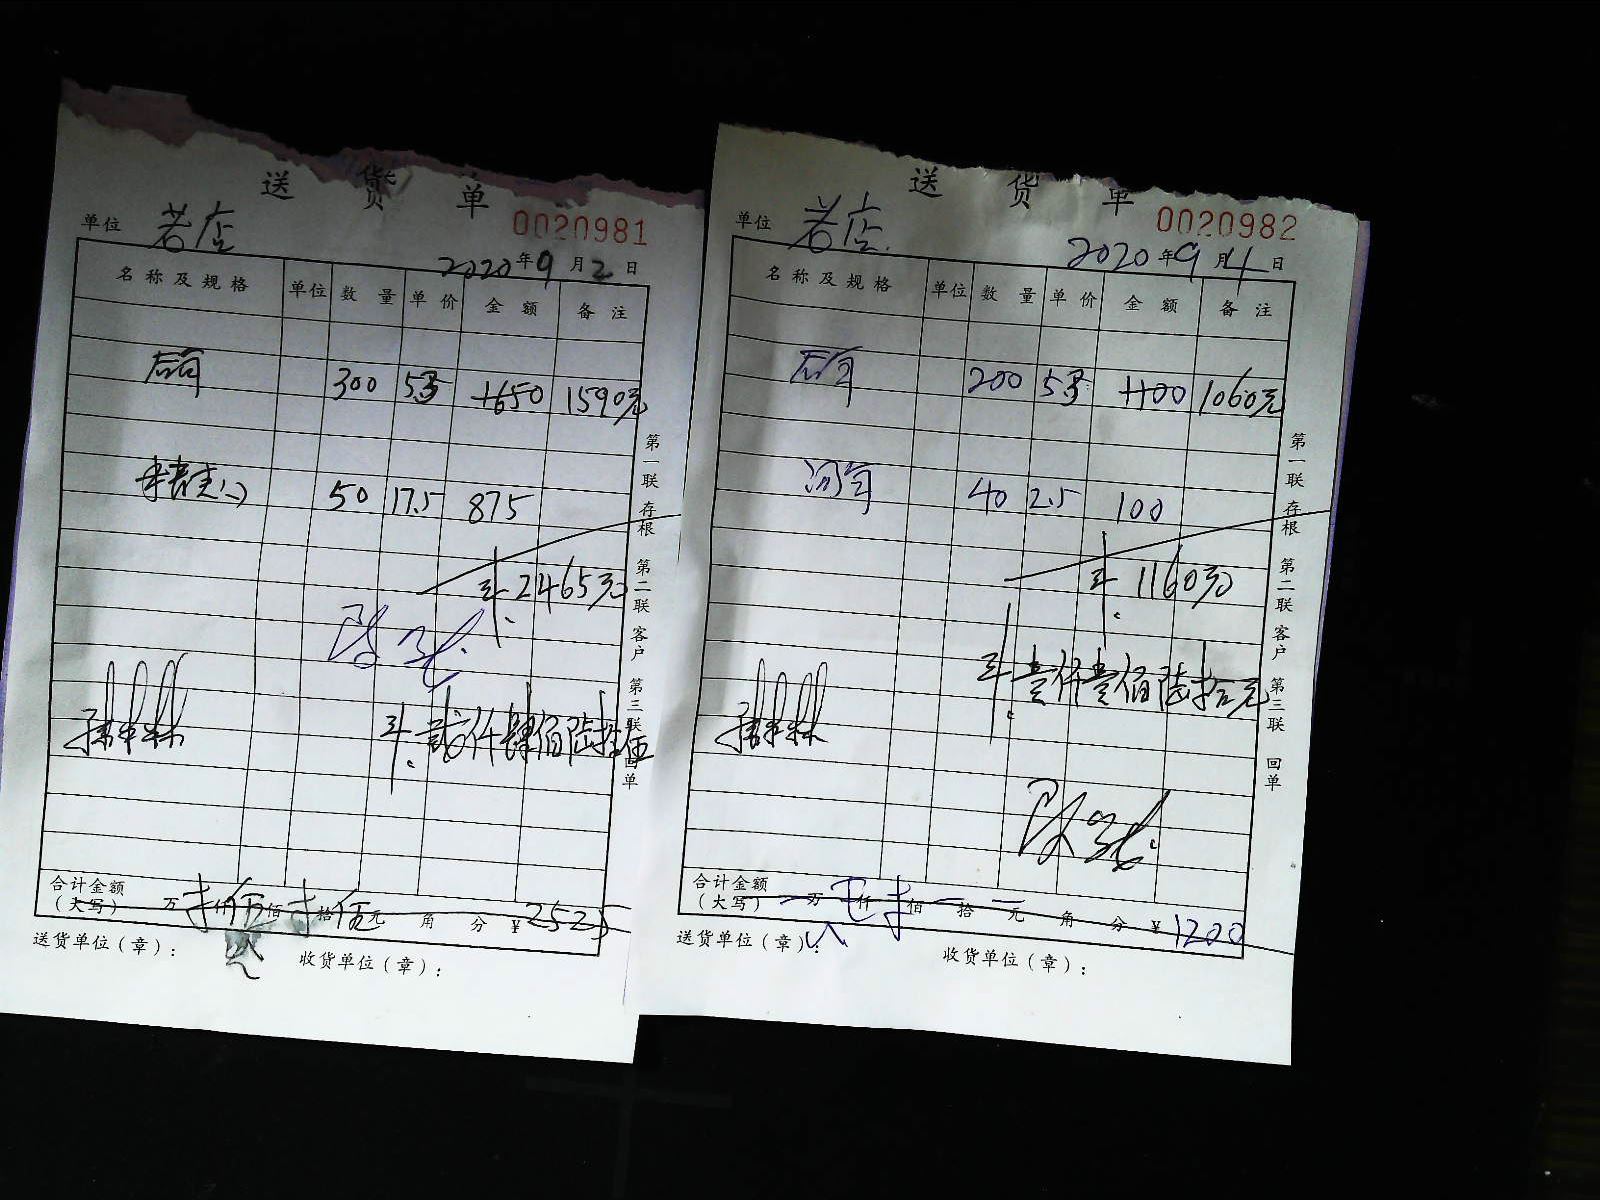 送货单
0020981
单位 若店
2020年9月2日
名称及规格 单位 数量 单价 金额 备注
300 5.3 1650 1590元
50 17.5 875
¥2465元
¥贰仟肆佰陆拾伍
合计金额
(大写) 万 仟 佰 拾 伍元 角 分 ¥2525
送货单位(章): 收货单位(章):
第一联 存根 第二联 客户 第三联 回单
送货单
0020982
单位 若店
2020年9月4日
名称及规格 单位 数量 单价 金额 备注
200 5.3 1100 1060元
40 2.5 100
¥1160元
¥壹仟壹佰陆拾元
合计金额
(大写) 万 仟 佰 拾 元 角 分 ¥1200
送货单位(章): 收货单位(章):
第一联 存根 第二联 客户 第三联 回单